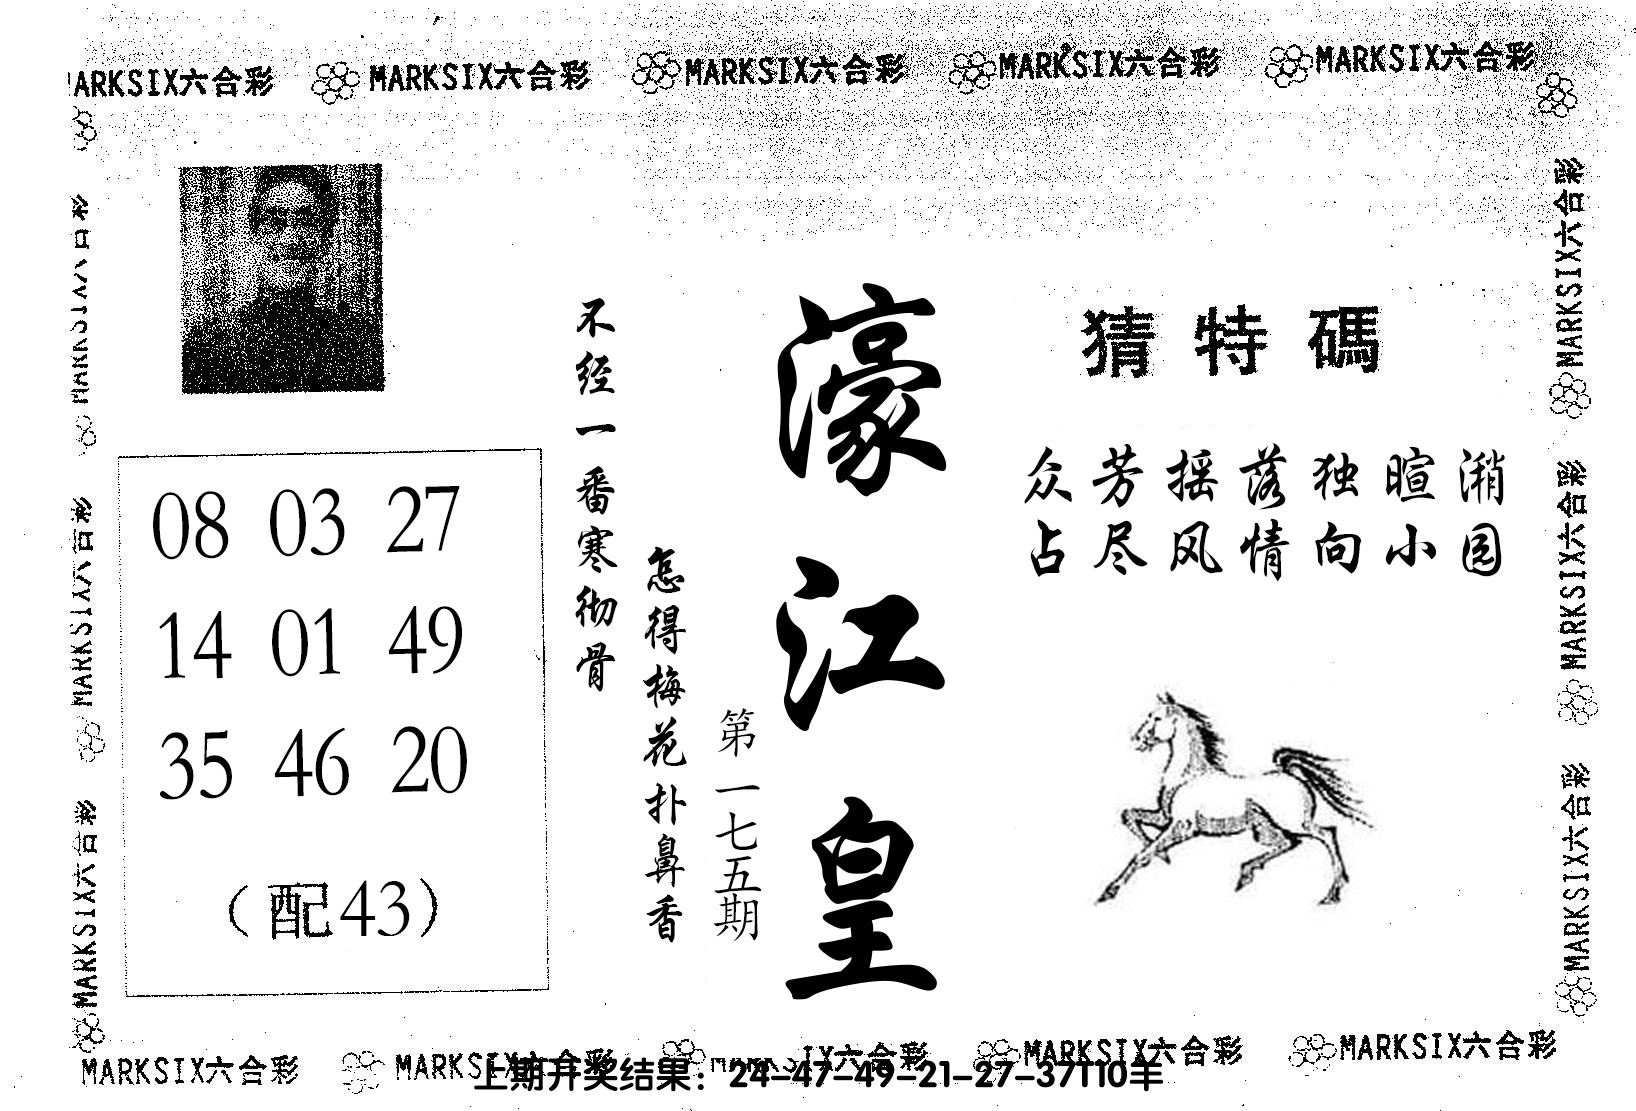 MARKSIX六合彩 MARKSIX六合彩 MARKSIX六合彩 MARKSIX六合彩 MARKSIX六合彩
MARKSIX六合彩
MARKSIX六合彩
MARKSIX六合彩
08 03 27
14 01 49
35 46 20
（配43）
不经一番寒彻骨
怎得梅花扑鼻香
第一七五期
濠江皇
猜特碼
众芳摇落独暄湘
占尽风情向小园
MARKSIX六合彩
MARKSIX六合彩
MARKSIX六合彩
MARKSIX六合彩 MARKSIX六合彩 IX六合彩 MARKSIX六合彩 MARKSIX六合彩
上期开奖结果：24-47-49-21-27-37T10羊